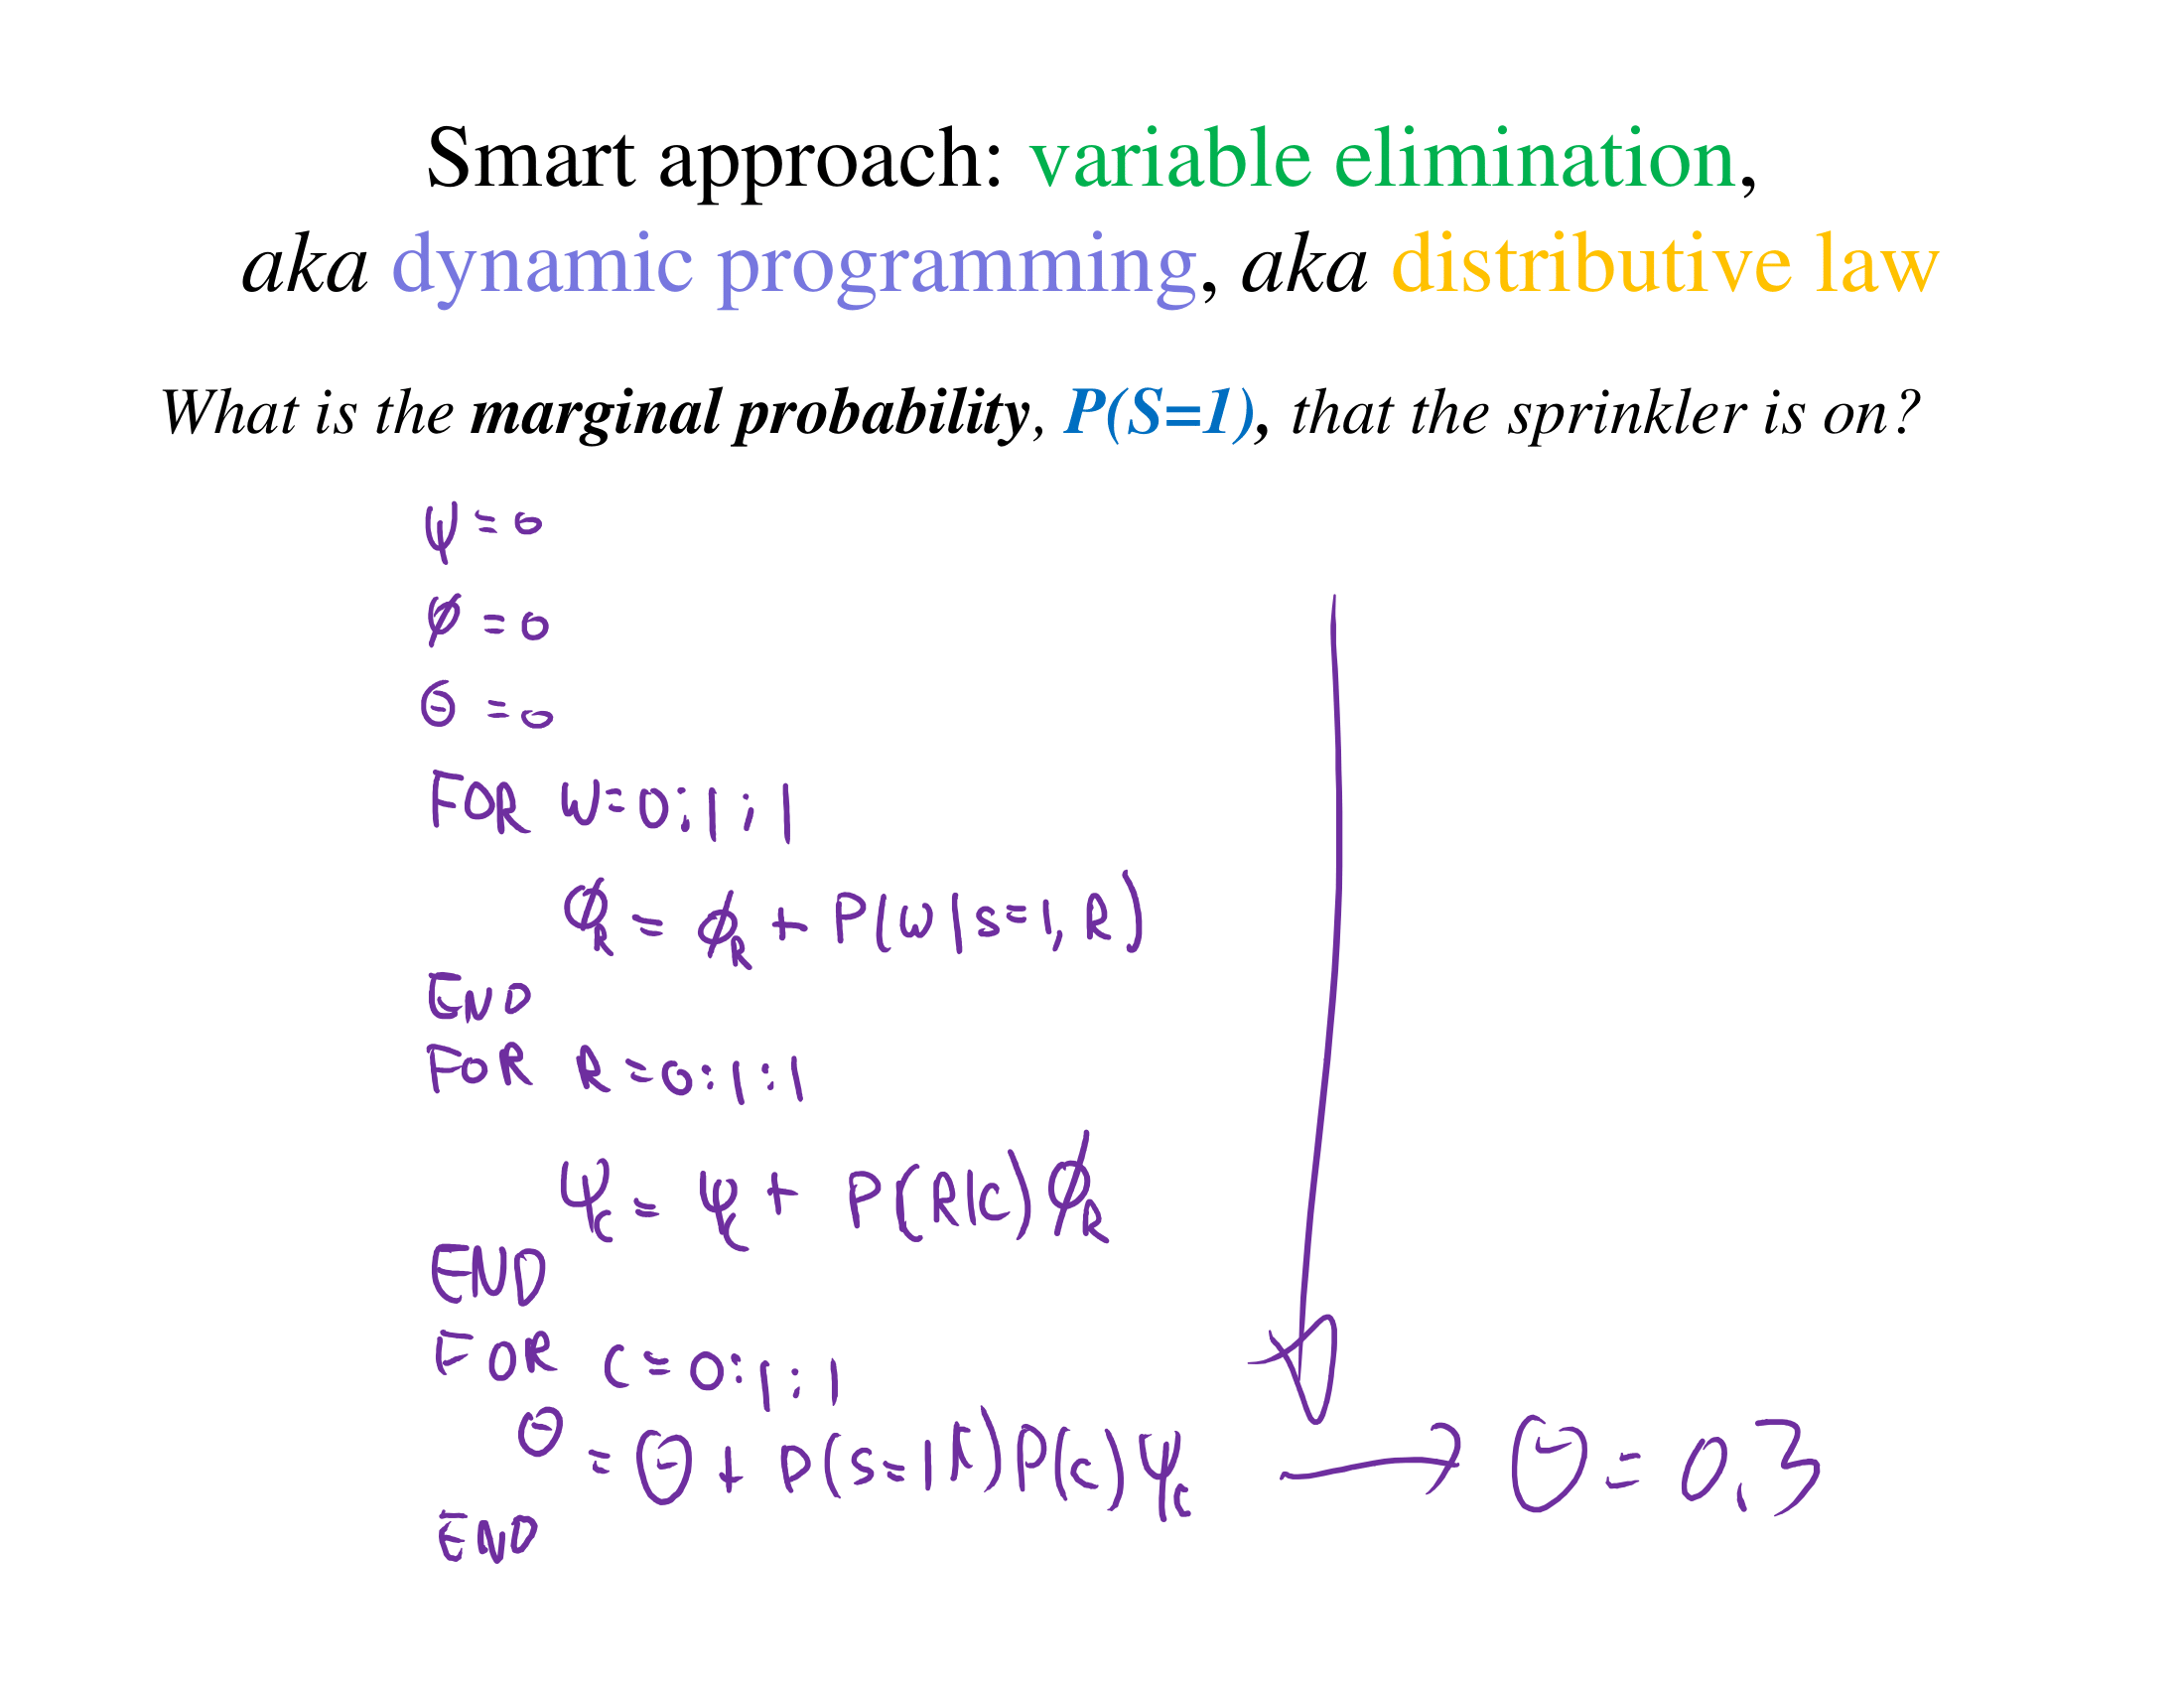 Smart approach: variable elimination,
aka dynamic programming, aka distributive law
What is the marginal probability, P(S=1), that the sprinkler is on?
ψ = 0
ϕ = 0
Θ = 0
FOR W=0:1:1
ϕ_R = ϕ_R + P(W|S=1, R)
END
FOR R=0:1:1
ψ_C = ψ_C + P(R|C) ϕ_R
END
FOR C=0:1:1
Θ = Θ + P(S=1|) P(C) ψ_C → Θ = 0.3
END